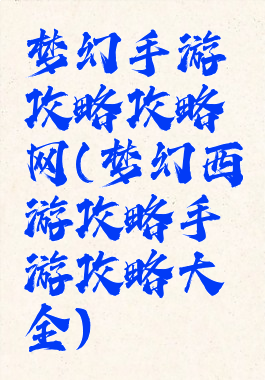 梦幻手游
攻略攻略
网(梦幻西
游攻略手
游攻略大
全)